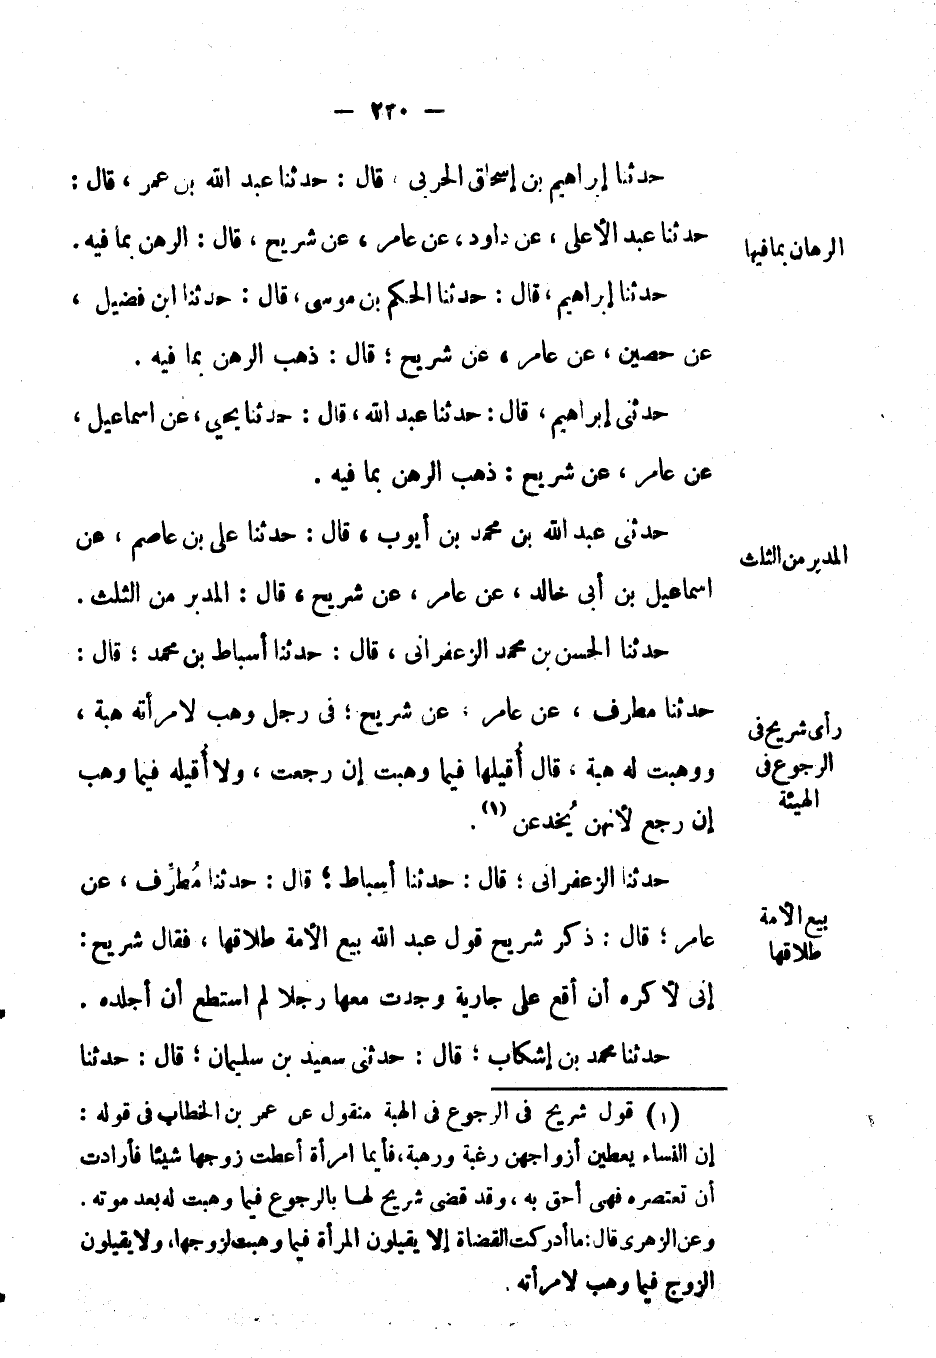 — ٢٣٠ —
حدثنا إبراهيم بن إسحاق الحربى ، قال : حدثنا عبد الله بن عمر ، قال :
الرهان بما فيها
حدثنا عبد الأعلى ، عن داود ، عن عامر ، عن شريح ، قال : الرهن بما فيه .
حدثنا إبراهيم ، قال : حدثنا الحكم بن موسى ، قال : حدثنا ابن فضيل ،
عن حصين ، عن عامر ، عن شريح ؛ قال : ذهب الرهن بما فيه .
حدثنى إبراهيم ، قال : حدثنا عبد الله ، قال : حدثنا يحيى ، عن اسماعيل ،
عن عامر ، عن شريح : ذهب الرهن بما فيه .
حدثنى عبد الله بن محمد بن أيوب ، قال : حدثنا على بن عاصم ، عن
المدبر من الثلث
اسماعيل بن أبى خالد ، عن عامر ، عن شريح ، قال : المدبر من الثلث .
حدثنا الحسن بن محمد الزعفرانى ، قال : حدثنا أسباط بن محمد ؛ قال :
حدثنا مطرف ، عن عامر ، عن شريح ؛ فى رجل وهب لامرأته هبة ،
رأى شريح فى
الرجوع فى
الهيئة
ووهبت له هبة ، قال أُقيلها فيما وهبت إن رجعت ، ولا أُقيله فيما وهب
إن رجع لأنهن يُخدعن (١) .
حدثنا الزعفرانى ؛ قال : حدثنا أسباط ؛ قال : حدثنا مُطرِّف ، عن
بيع الأمة
طلاقها
عامر ؛ قال : ذكر شريح قول عبد الله بيع الأمة طلاقها ، فقال شريح :
إنى لأكره أن أقع على جارية وجدت معها رجلا لم استطع أن أجلده .
حدثنا محمد بن إشكاب ؛ قال : حدثنى سعيد بن سليمان ؛ قال : حدثنا
(١) قول شريح فى الرجوع فى الهبة منقول عن عمر بن الخطاب فى قوله :
إن النساء يعطين أزواجهن رغبة ورهبة ، فأيما امرأة أعطت زوجها شيئا فأرادت
أن تعتصره فهى أحق به ، وقد قضى شريح لها بالرجوع فيما وهبت له بعد موته .
وعن الزهرى قال : ما أدركت القضاة إلا يقيلون المرأة فيما وهبت لزوجها، ولا يقيلون
الزوج فيما وهب لامرأته .